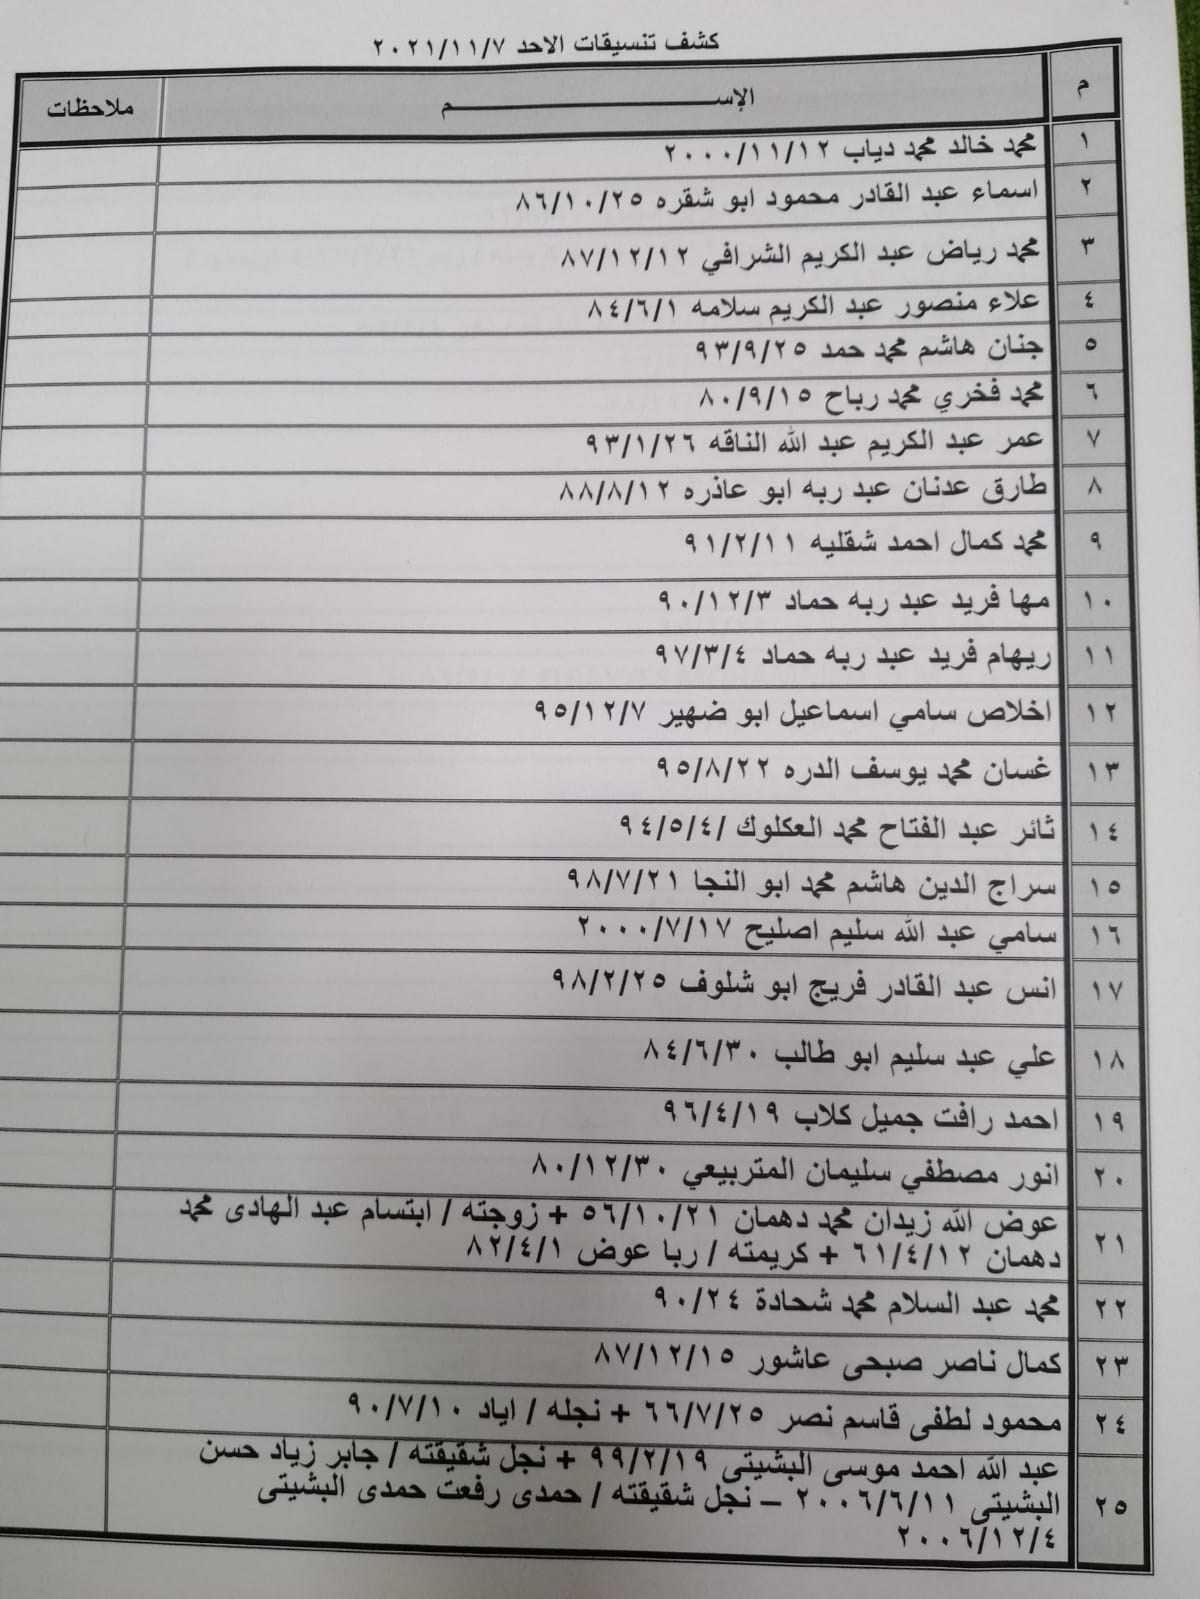 كشف تنسيقات الاحد ٢٠٢١/١١/٧
م الإســـــــــم ملاحظات
١ محمد خالد محمد دياب ٢٠٠٠/١١/١٢
٢ اسماء عبد القادر محمود ابو شقره ٨٦/١٠/٢٥
٣ محمد رياض عبد الكريم الشرافي ٨٧/١٢/١٢
٤ علاء منصور عبد الكريم سلامه ٨٤/٦/١
٥ جنان هاشم محمد حمد ٩٣/٩/٢٥
٦ محمد فخري محمد رباح ٨٠/٩/١٥
٧ عمر عبد الكريم عبد الله الناقه ٩٣/١/٢٦
٨ طارق عدنان عبد ربه ابو عاذره ٨٨/٨/١٢
٩ محمد كمال احمد شقليه ٩١/٢/١١
١٠ مها فريد عبد ربه حماد ٩٠/١٢/٣
١١ ريهام فريد عبد ربه حماد ٩٧/٣/٤
١٢ اخلاص سامي اسماعيل ابو ضهير ٩٥/١٢/٧
١٣ غسان محمد يوسف الدره ٩٥/٨/٢٢
١٤ ثائر عبد الفتاح محمد العكلوك /٩٤/٥/٤
١٥ سراج الدين هاشم محمد ابو النجا ٩٨/٧/٢١
١٦ سامي عبد الله سليم اصليح ٢٠٠٠/٧/١٧
١٧ انس عبد القادر فريج ابو شلوف ٩٨/٢/٢٥
١٨ علي عبد سليم ابو طالب ٨٤/٦/٣٠
١٩ احمد رافت جميل كلاب ٩٦/٤/١٩
٢٠ انور مصطفي سليمان المتربيعي ٨٠/١٢/٣٠
٢١ عوض الله زيدان محمد دهمان ٥٦/١٠/٢١ + زوجته / ابتسام عبد الهادى محمد
دهمان ٦١/٤/١٢ + كريمته / ربا عوض ٨٢/٤/١
٢٢ محمد عبد السلام محمد شحادة ٩٠/٢٤
٢٣ كمال ناصر صبحى عاشور ٨٧/١٢/١٥
٢٤ محمود لطفى قاسم نصر ٦٦/٧/٢٥ + نجله / اياد ٩٠/٧/١٠
٢٥ عبد الله احمد موسى البشيتى ٩٩/٢/١٩ + نجل شقيقته / جابر زياد حسن
البشيتى ٢٠٠٦/٦/١١ – نجل شقيقته / حمدى رفعت حمدى البشيتى
٢٠٠٦/١٢/٤